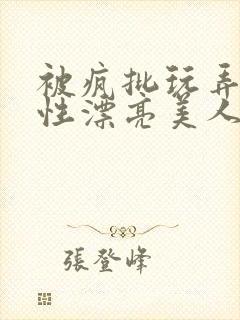 被疯批玩弄
性漂亮美人
張登峰